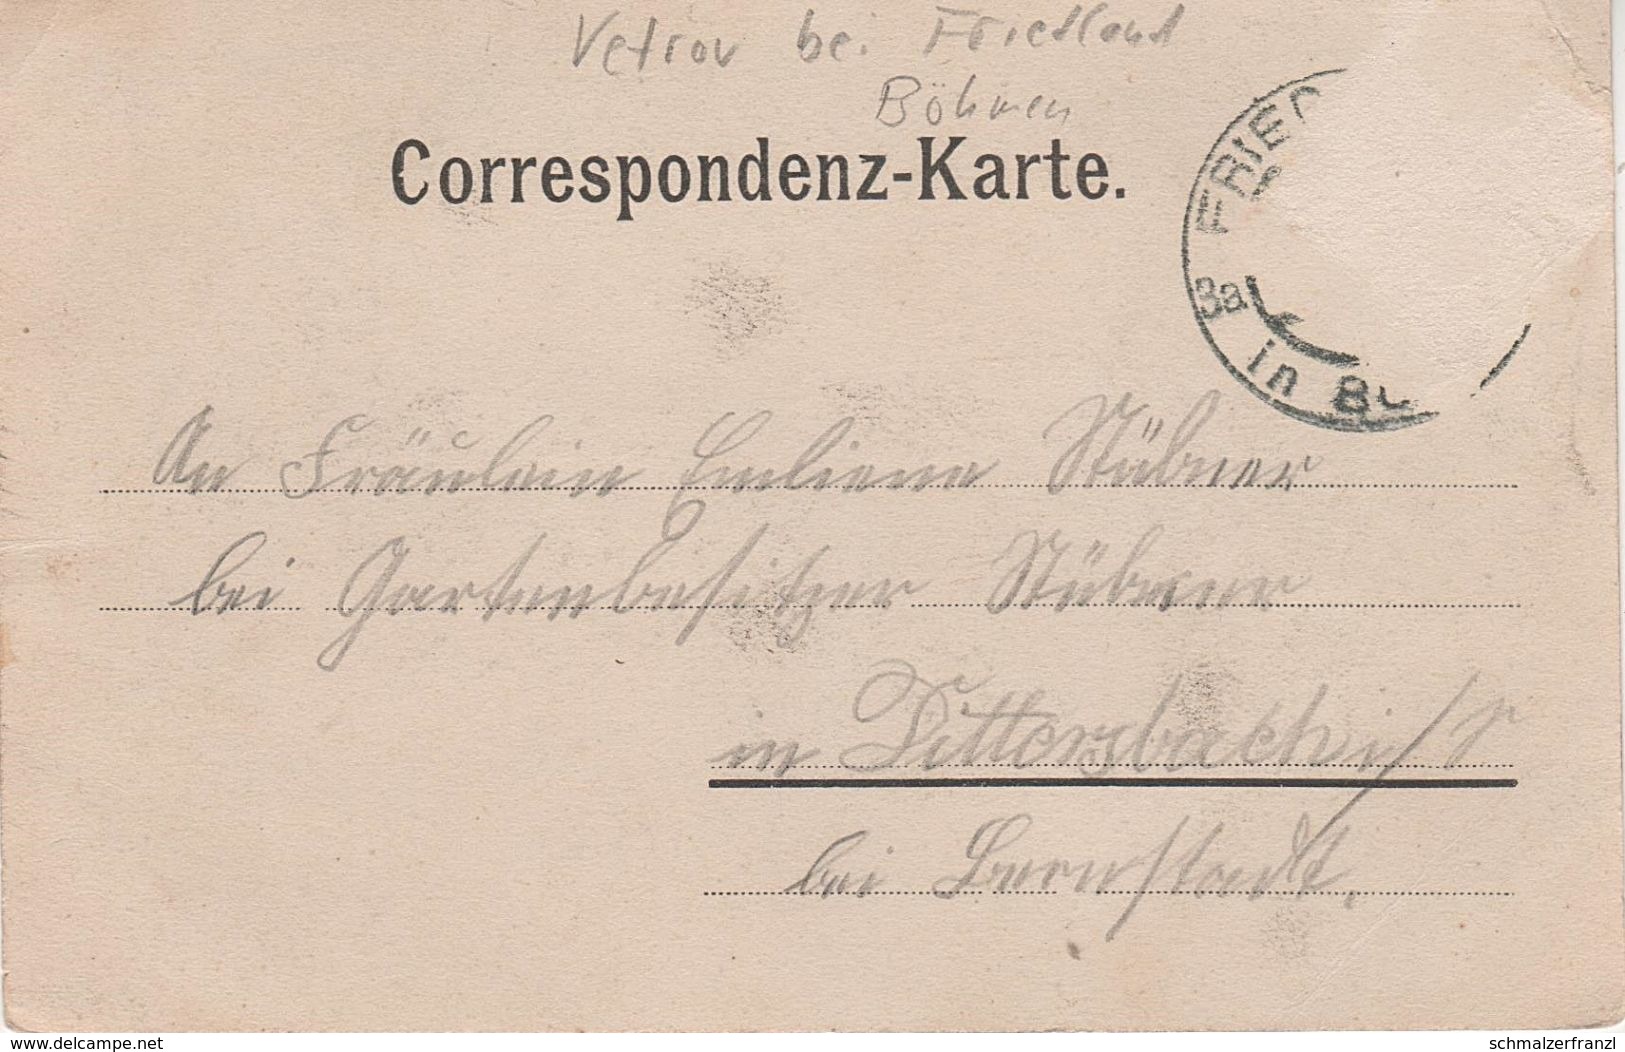 Vetrov bei Friedland
Böhmen
Correspondenz-Karte.
FRIED
3a
in Bö
An Fräulein Emiliene Stübner
bei Gartenbesitzer Stübner
in Dittersbach i/S
bei Bernstadt.
www.delcampe.net
schmalzerfranzl